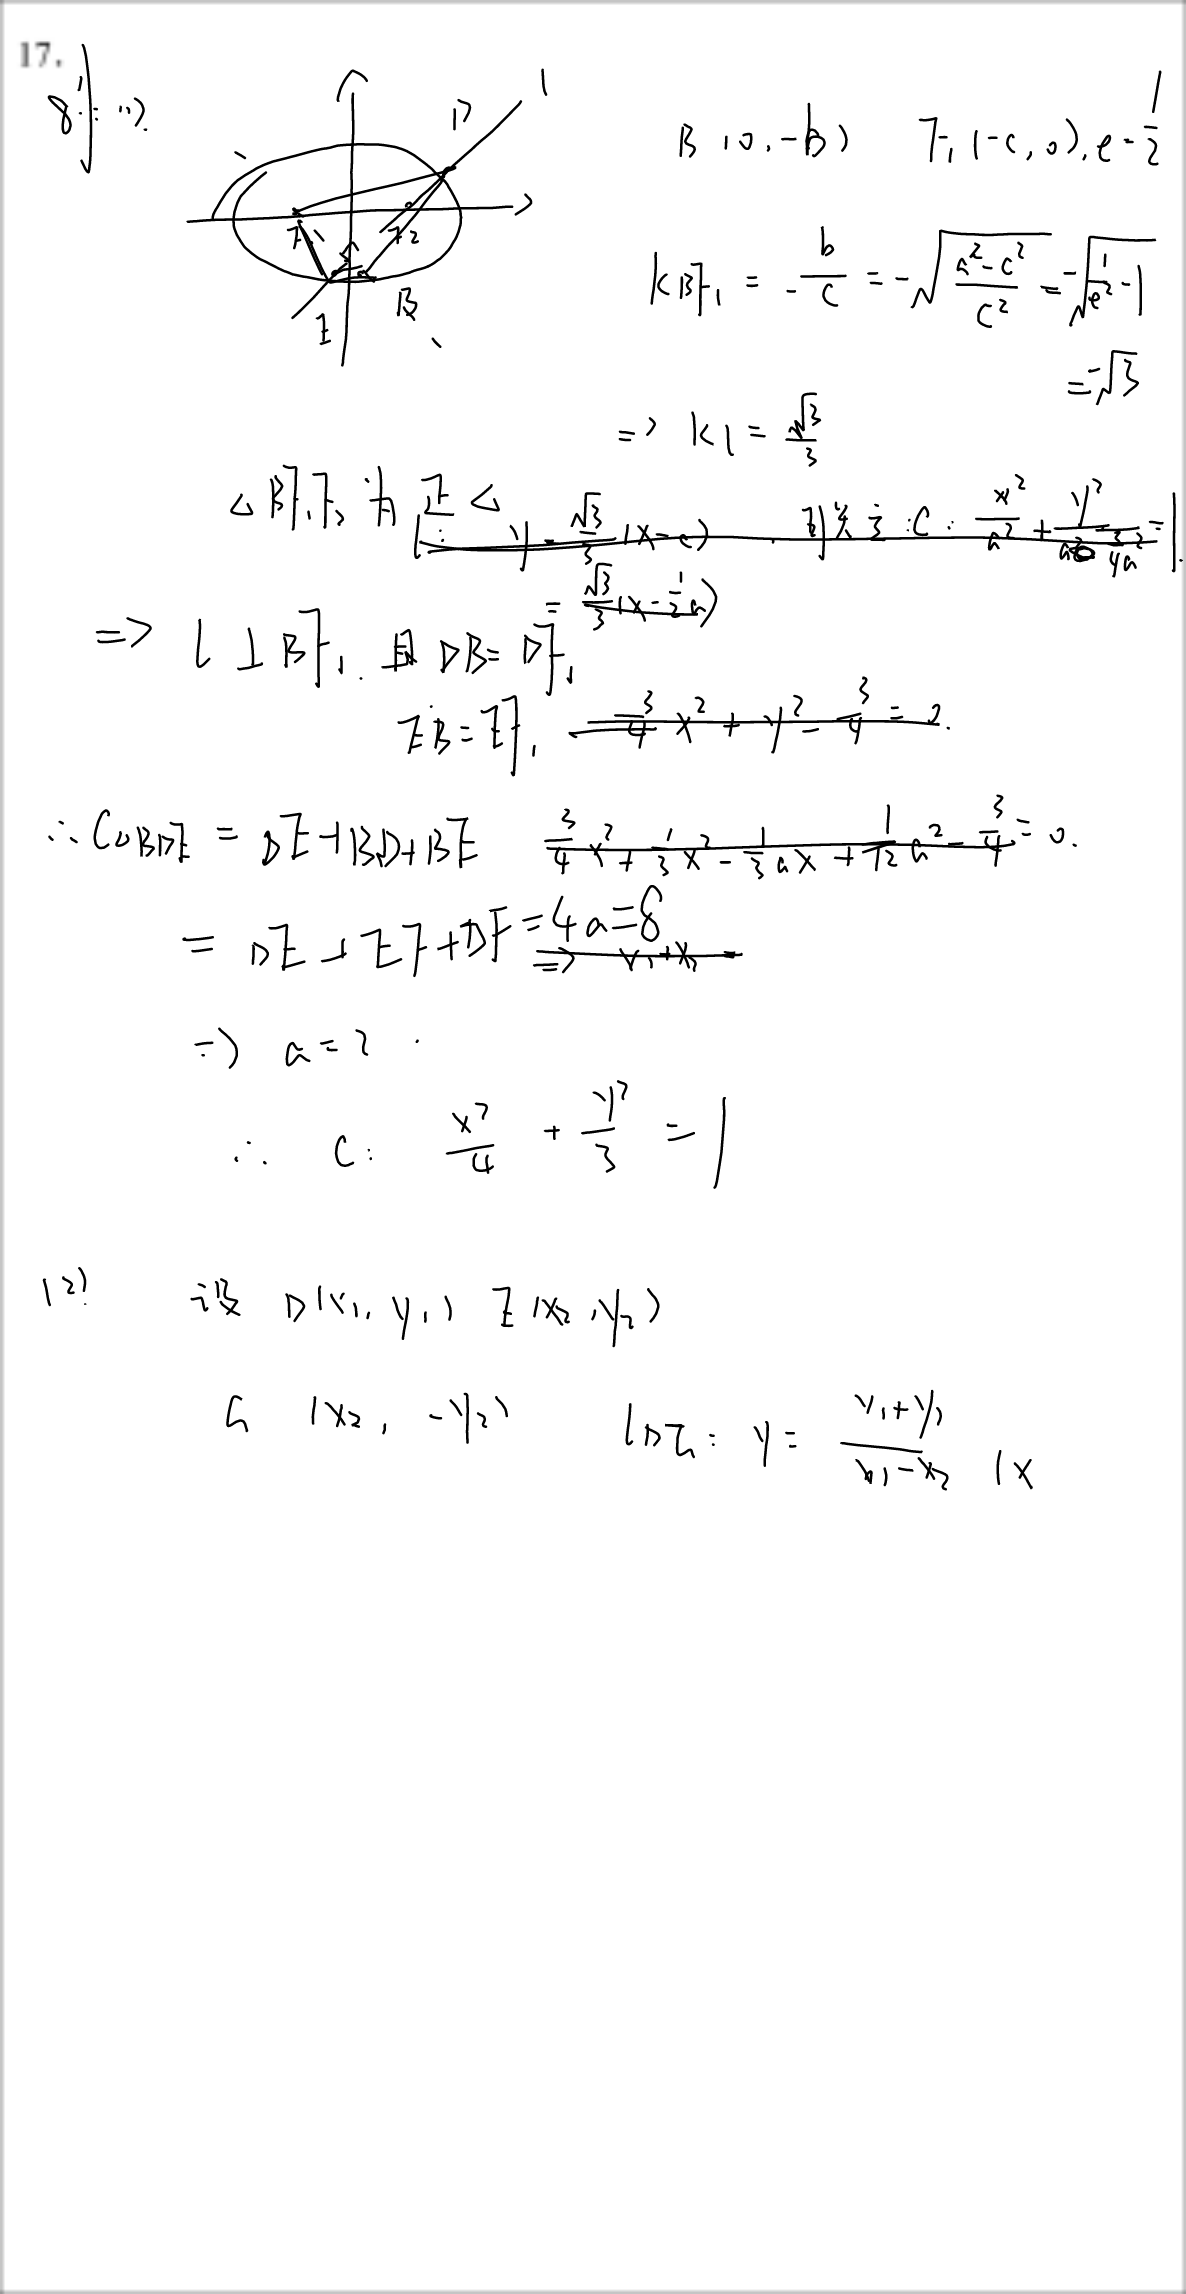 17.
8' (1).
l
D
F₁ F₂
E B
B(0,-b) F₁(-c,0), e=1/2
kBF₁ = -b/c = -√((a²-c²)/c²) = -√(1/e²-1)
= -√3
=> kl = √3/3
△BF₁F₂为正△
l: y=√3/3(x-c). C: x²/a² + y²/(3/4a²) = 1.
= √3/3(x-1/2a)
=> l⊥BF₁. 且 DB=DF₁
EB=EF₁ 3/4x²+y²-3/4=0.
∴C△BDE = DE+BD+BE 3/4x²+1/3x²-1/3ax+1/12a²-3/4=0.
= DE+EF+DF=4a=8
=> x₁+x₂
=> a=2.
∴ C: x²/4 + y²/3 = 1
(2) 设 D(x₁,y₁) E(x₂,y₂)
G(x₂,-y₂) lDG: y= (y₁+y₂)/(x₁-x₂) (x